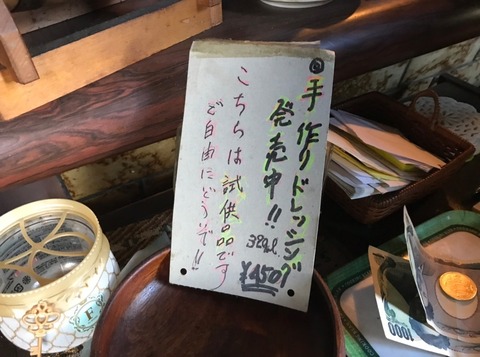 ◎手作りドレッシング
発売中!!
320ml.
¥450
こちらは試供品です
ご自由にどうぞ!!
E
1000